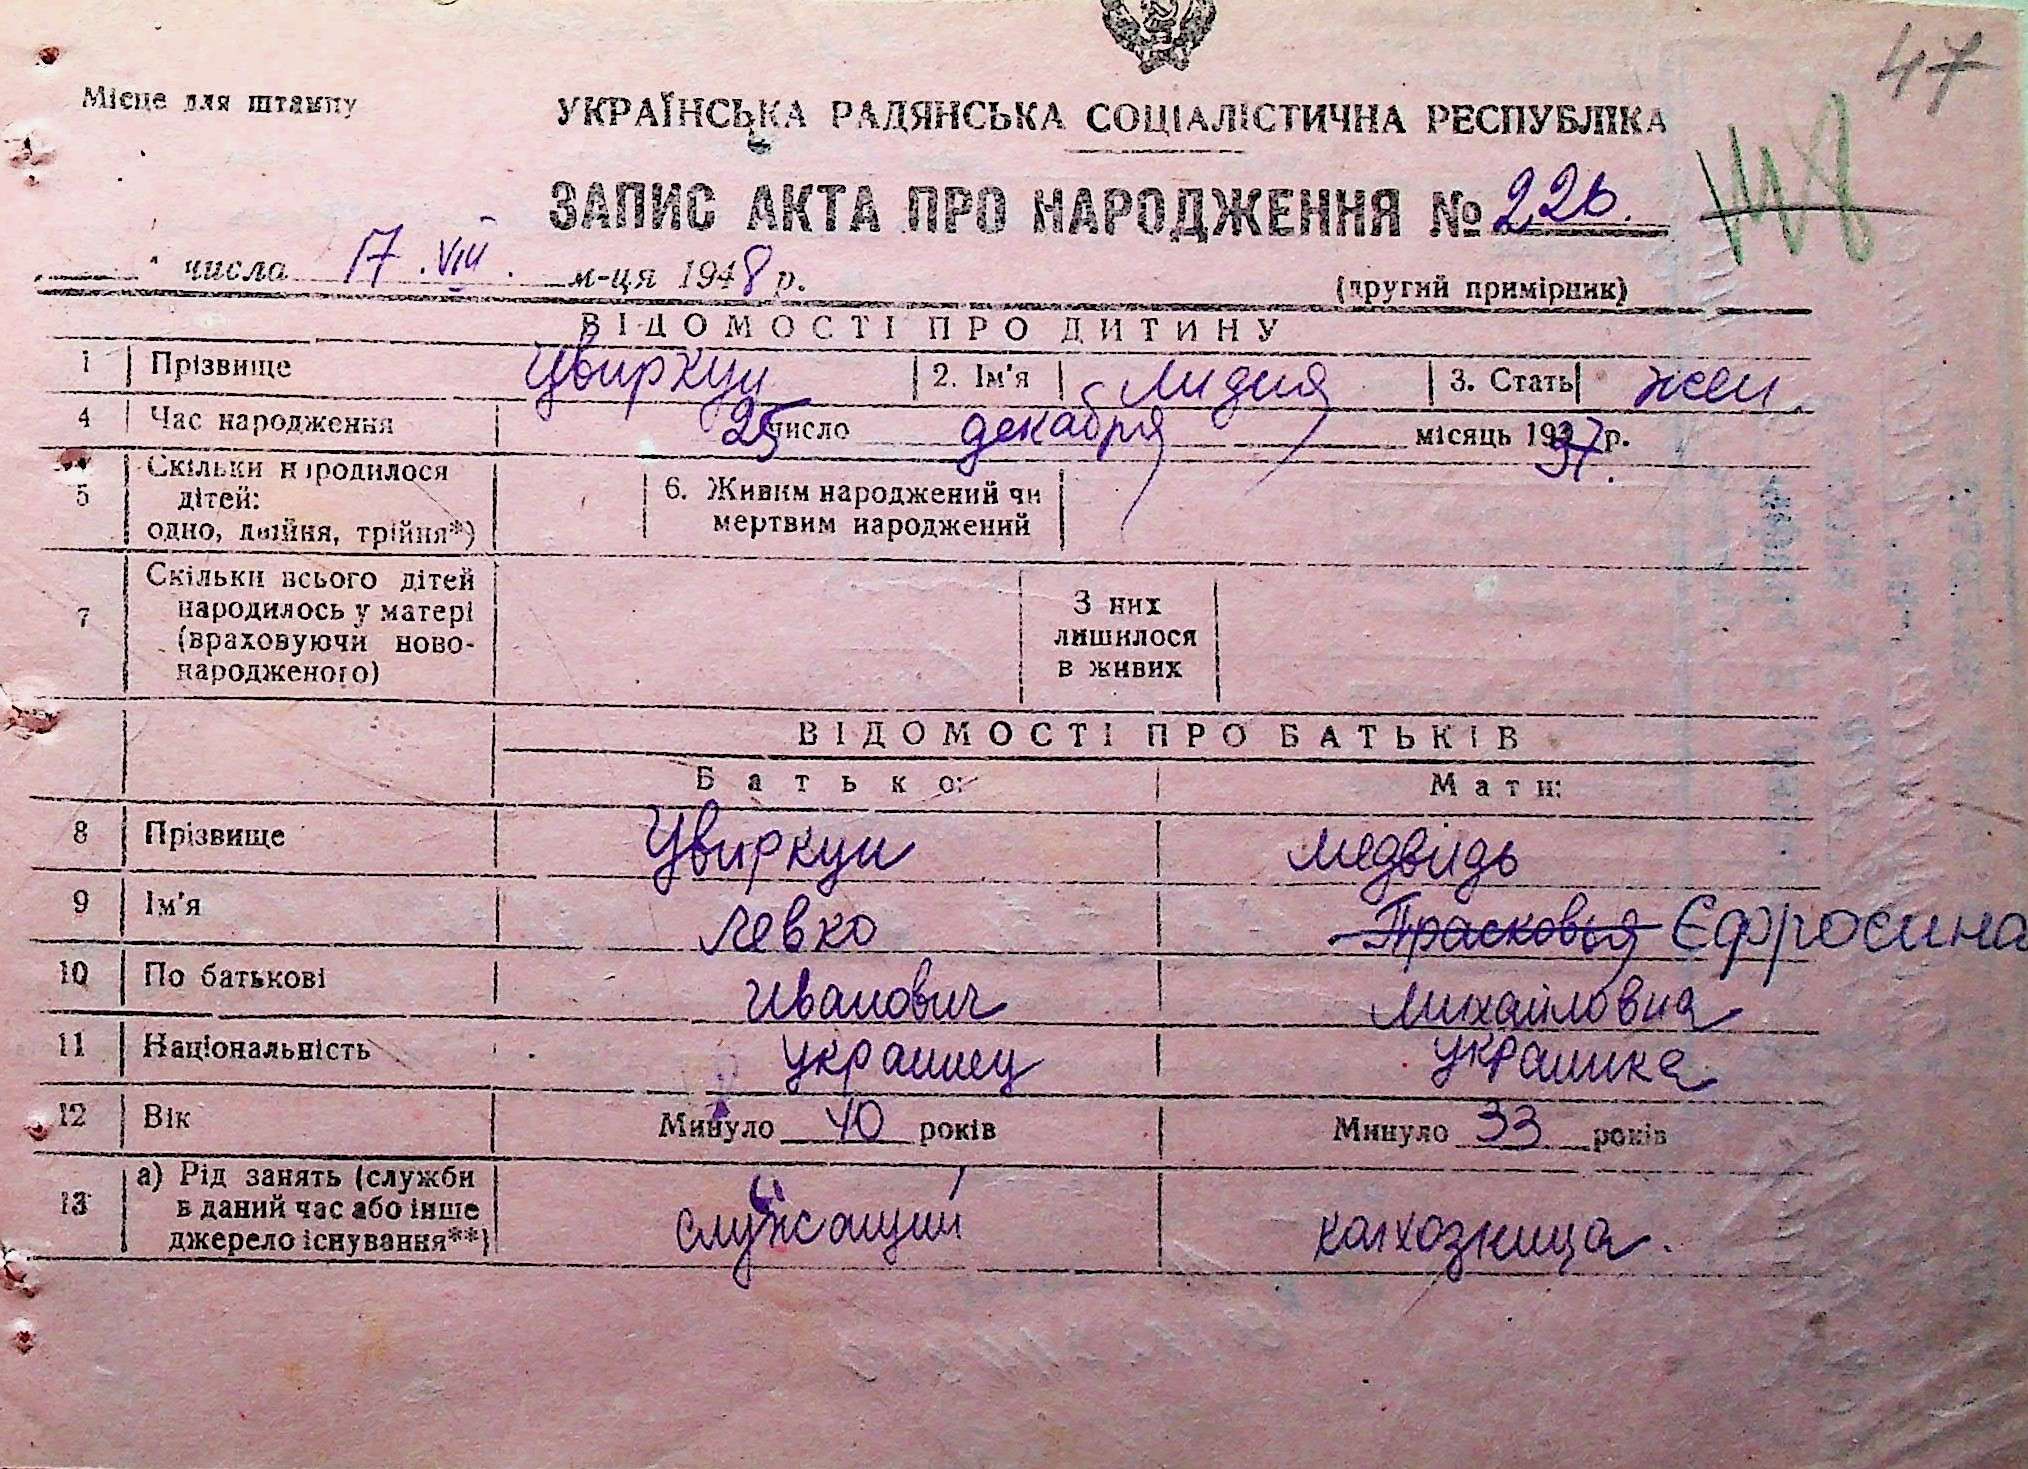 47
Місце для штампу
УКРАЇНСЬКА РАДЯНСЬКА СОЦІАЛІСТИЧНА РЕСПУБЛІКА
ЗАПИС АКТА ПРО НАРОДЖЕННЯ № 226.
числа 17.VIII. м-ця 1948 р.
(другий примірник)
ВІДОМОСТІ ПРО ДИТИНУ
1 Прізвище Цвиркун 2. Ім'я Лидия 3. Стать жен.
4 Час народження 25 число декабря місяць 1937 р.
5 Скільки народилося
дітей:
одно, двійня, трійня*)
6. Живим народжений чи
мертвим народжений
7 Скільки всього дітей
народилось у матері
(враховуючи ново-
народженого)
З них
лишилося
в живих
ВІДОМОСТІ ПРО БАТЬКІВ
Батько: Мати:
8 Прізвище Цвиркун Медвидь
9 Ім'я Левко Прасковья Єфросина
10 По батькові Иванович Михайловна
11 Національність украинец украинка
12 Вік Минуло 40 років Минуло 33 років
13 а) Рід занять (служби
в даний час або інше
джерело існування**)
служащий колхозница.